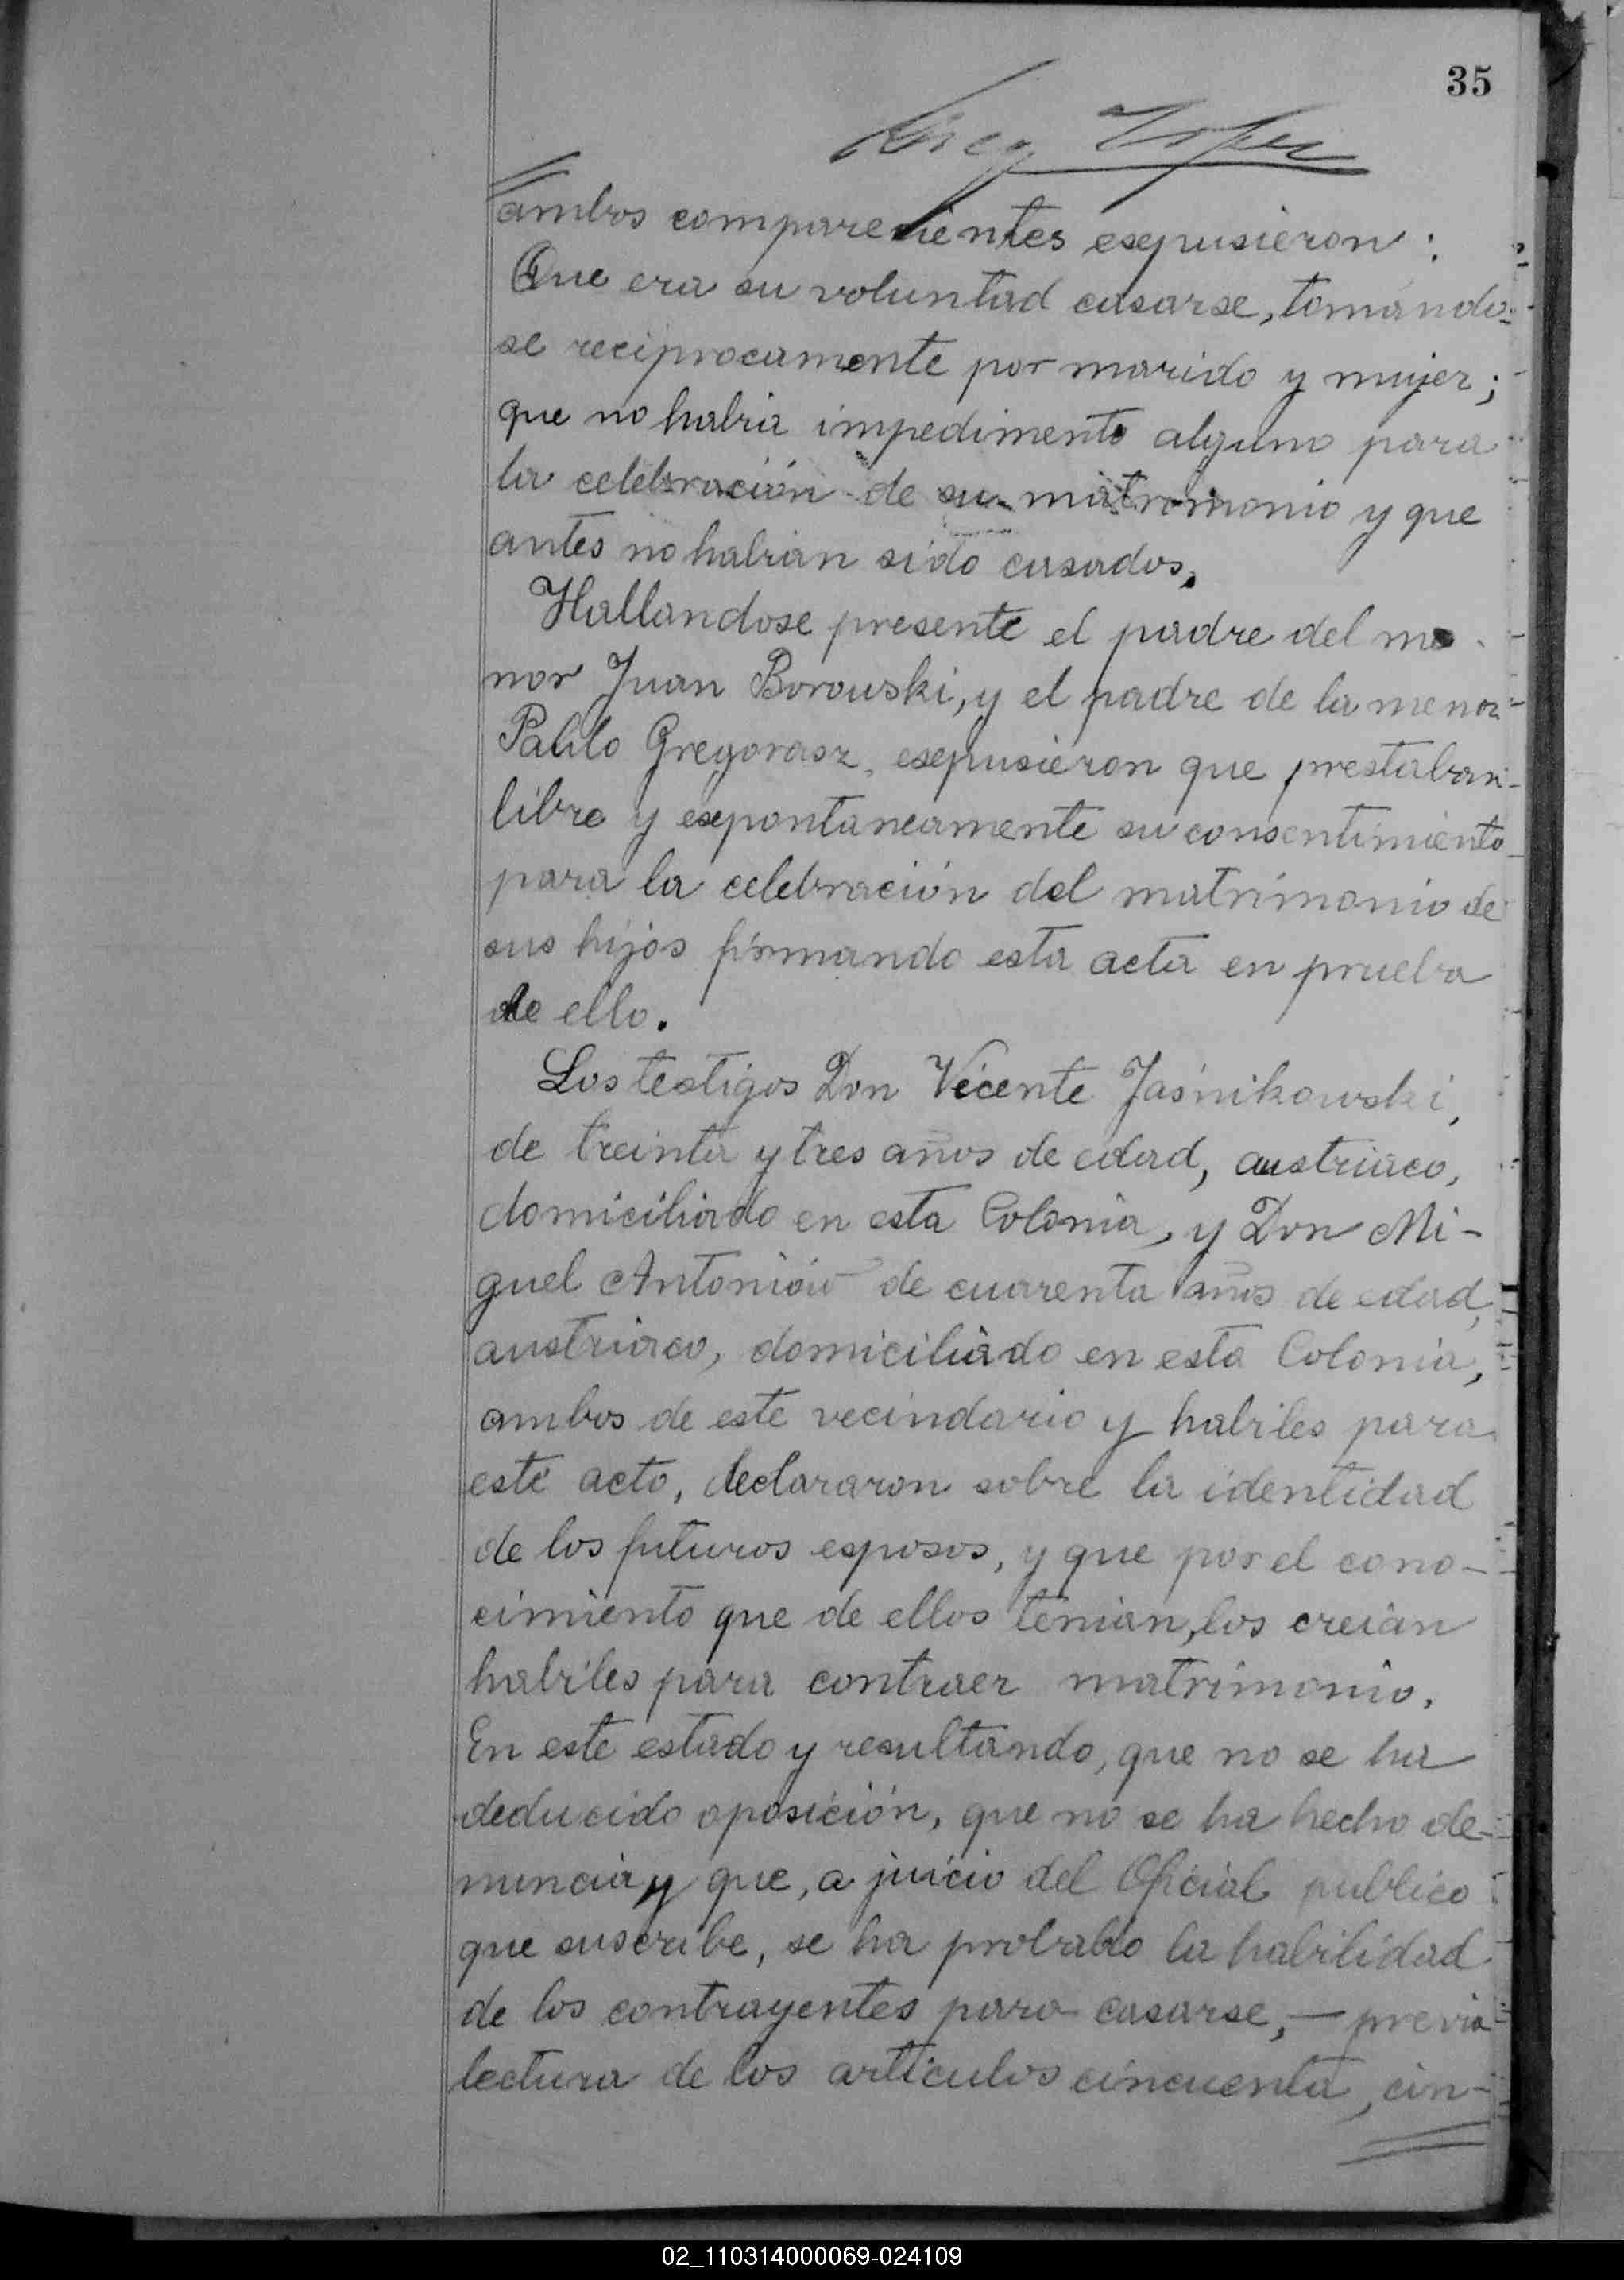 35
ambos comparecientes esepusieron :
Que era su voluntad casarse, tomándo-
se reciprocamente por marido y mujer;
que no habia impedimento alguno para
la celebración de su matromonio y que
antes no habian sido casados.
Hallandose presente el padre del me-
nor Juan Borowski, y el padre de la menor
Pablo Gregorasz, esepusieron que prestaban
libre y esepontaneamente su consentimiento
para la celebración del matrimonio de
sus hijos firmando esta acta en prueba
de ello.
Los testigos Don Vicente Jaśnikowski,
de treinta y tres años de edad, austriaco,
domiciliado en esta Colonia, y Don Mi-
guel Antoniów de cuarenta años de edad,
austriaco, domiciliado en esta Colonia,
ambos de este vecindario y habiles para
este acto, declararon sobre la identidad
de los futuros esposos, y que por el cono-
cimiento que de ellos tenian, los creian
habiles para contraer matrimonio.
En este estado y resultando, que no se ha
deducido oposición, que no se ha hecho de-
nuncia y que, a juicio del Oficial publico
que suscribe, se ha probado la habilidad
de los contrayentes para casarse, — previa
lectura de los articulos cincuenta, cin-
02_110314000069-024109